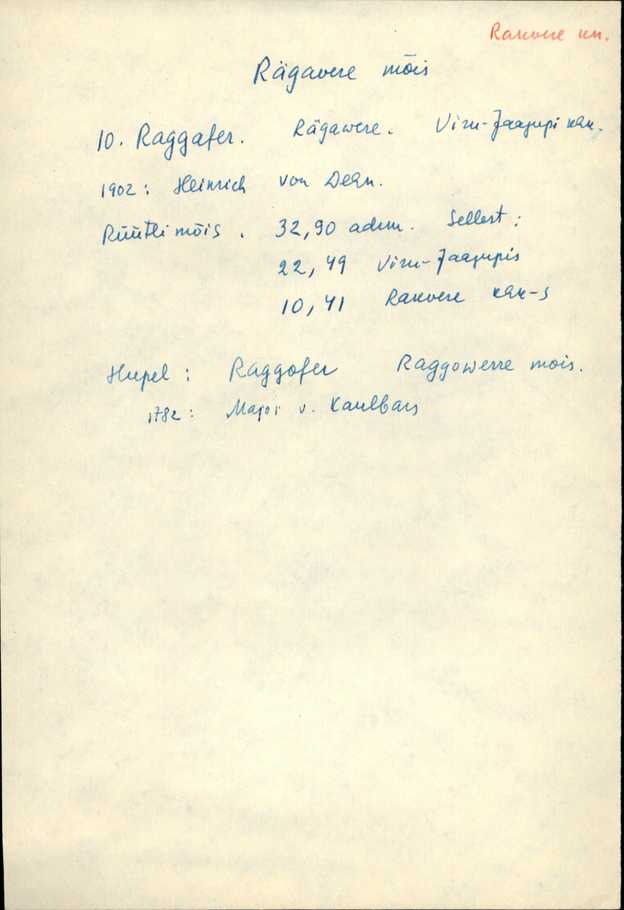 Rakvere kn.
Rägavere mõis
10. Raggafer. Rägawere. Viru-Jaagupi khk.
1902: Heinrich von Dehn.
Rüütli mõis. 32,90 adm. Sellest:
22,49 Viru-Jaagupis
10,41 Rakvere khk-s
Hupel: Raggofer Raggowerre mois.
1782: Major v. Kaulbars